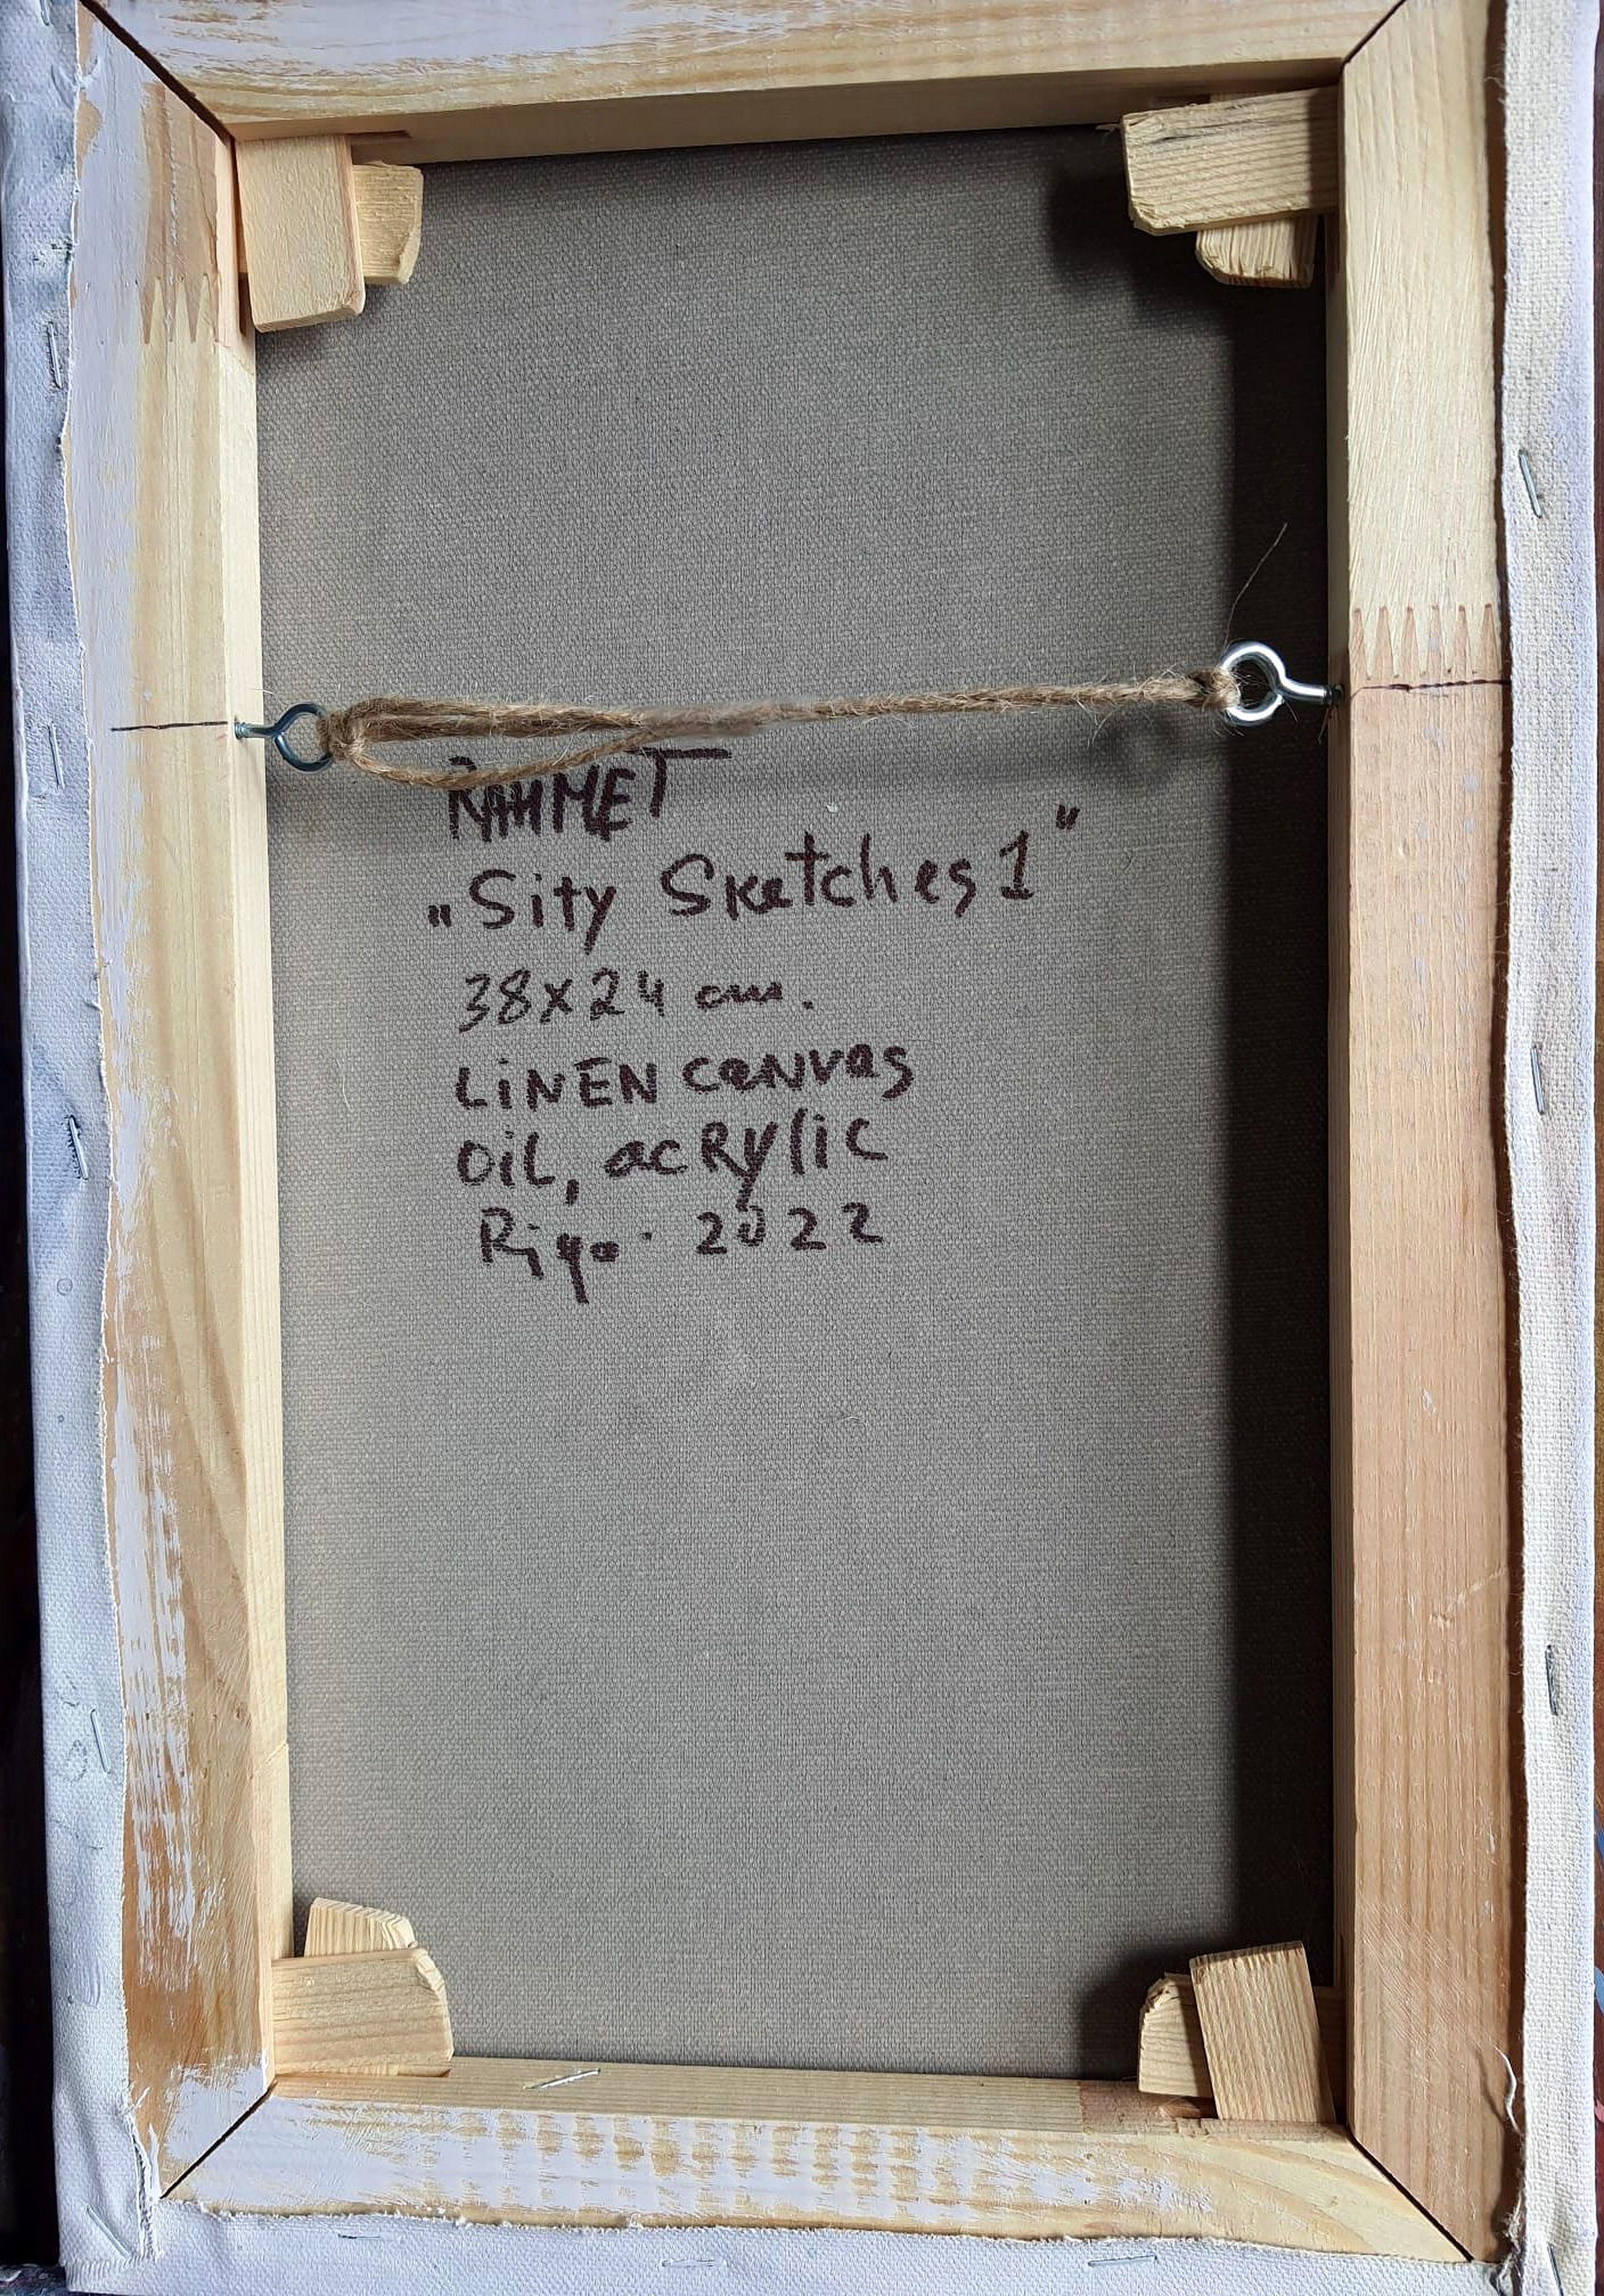 RAHMET
„Sity Sketches 1"
38x24 cm.
LiNEN canvas
Oil, acRylic
Riga. 2022